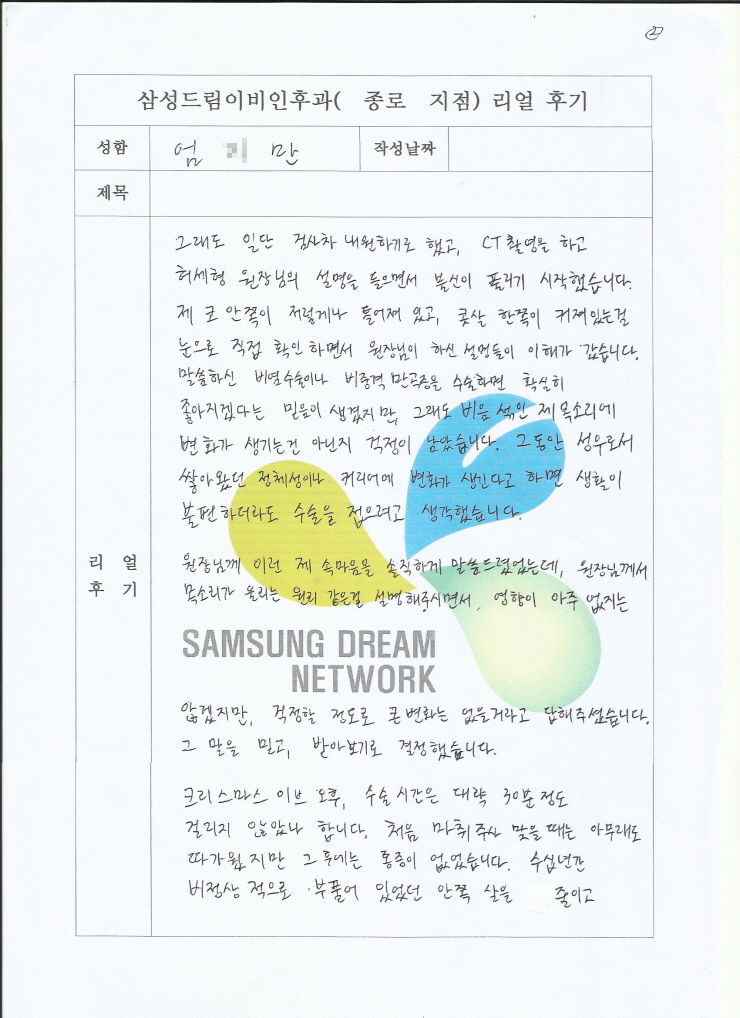 ②
삼성드림이비인후과( 종로 지점) 리얼 후기
성함 엄 만 작성날짜
제목
리 얼
후 기
그래도 일단 검사차 내원하기로 했고, CT촬영을 하고
허세형 원장님의 설명을 들으면서 불신이 풀리기 시작했습니다.
제 코 안쪽이 저렇게나 틀어져 있고, 콧살 한쪽이 커져있는걸
눈으로 직접 확인하면서 원장님이 하신 설명들이 이해가 갔습니다.
말씀하신 비염수술이나 비중격 만곡증을 수술하면 확실히
좋아지겠다는 믿음이 생겼지만, 그래도 비음 섞인 제 목소리에
변화가 생기는건 아닌지 걱정이 남았습니다. 그동안 성우로서
쌓아왔던 정체성이나 커리어에 변화가 생긴다고 하면 생활이
불편하더라도 수술을 접으려고 생각했습니다.
원장님께 이런 제 속마음을 솔직하게 말씀드렸었는데, 원장님께서
목소리가 울리는 원리 같은걸 설명해주시면서, 영향이 아주 없지는
SAMSUNG DREAM
NETWORK
않겠지만, 걱정할 정도로 큰변화는 없을거라고 답해주셨습니다.
그 말을 믿고, 받아보기로 결정했습니다.
크리스마스 이브 오후, 수술 시간은 대략 30분 정도
걸리지 않았나 합니다. 처음 마취주사 맞을때는 아무래도
따가웠지만 그 후에는 통증이 없었습니다. 수십년간
비정상적으로 부풀어 있었던 안쪽 살을 줄이고